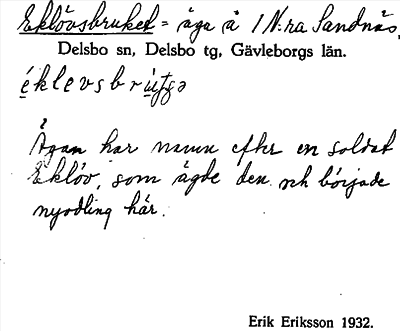 Eklövsbruket = äga å 1 N:ra Sandnäs,
Delsbo sn, Delsbo tg, Gävleborgs län.
Ägan har namn efter en soldat
Eklöv, som ägde den och började
nyodling här.
Erik Eriksson 1932.